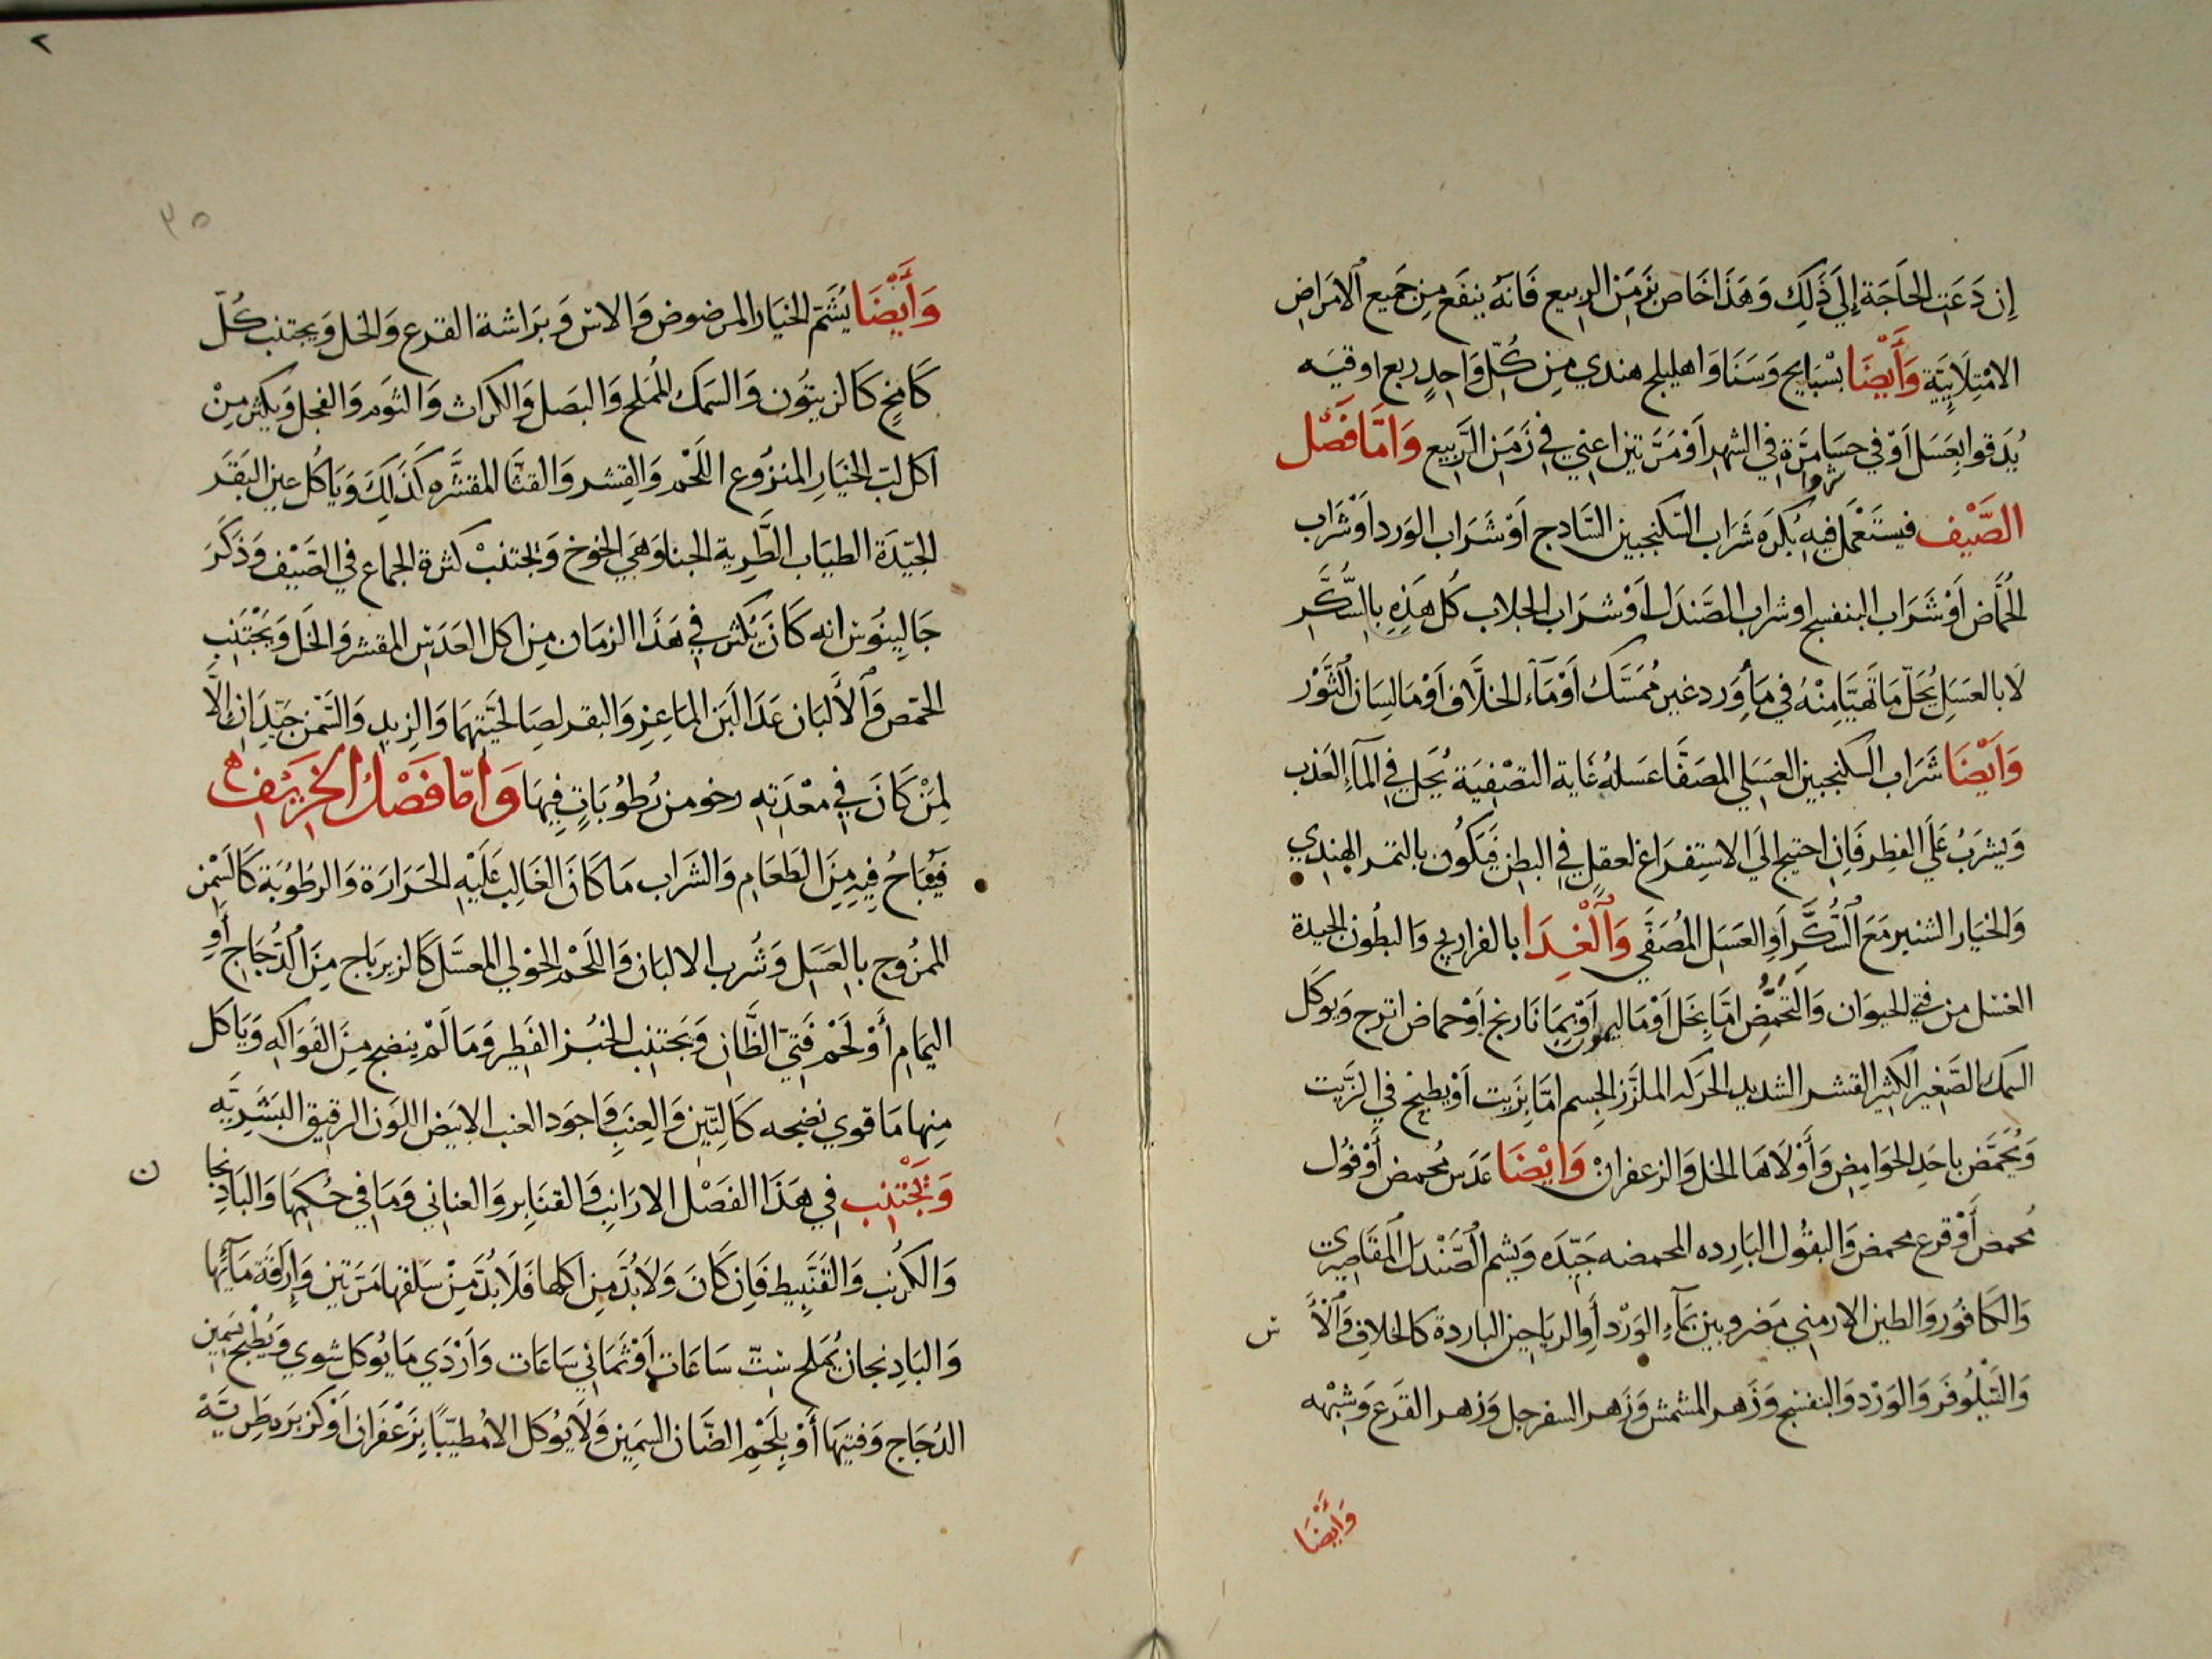 إِن دَعَتِ الحَاجَة إِلَي ذَلِكَ وَهَذَا خَاص بزَمَن الربيع فَانهُ ينفَع مِن جَميع الامَراض
الامْتِلَايِيَّة وَأَيْضَا بسْبَايج وَسَنَا وَاهليلج هندي مِن كُلّ وَاحِدٍ ربع اوقيه
يُدَقوا بعَسَل أوْ في حسَا مَرَّة في الشهر أوْ مَرَّتين اعني في زَمَن الرَّبيع وَامَّا فَصْل
الصَّيْف فيستَعْمَل فيهِ بُكرَه شَرَاب السكنجبين السَّادج اَوْ شَرَاب الوَرد اَوْ شَرَاب
الحُمَّاض اَوْ شَرَاب البنفسج او شراب الصَّندَل اَوْ شرَاب الجلاب كُل هَذِهِ بالسُّكَّرِ
لَا بالعسَلِ يُحَلّ مَا تَهيَّا مِنْهُ في مَا وَرد غير مُمَسَّك اَوْ مَآء الخلَّاف اَوْ مَا لِسَان الثَّوْر
وَايْضَا شَرَاب السكنجبين العسَلي المصَفَّا عسَلهُ غَاية التصْفيَة يُحَل في المآءِ العَذب
وَيشرَبُ عَلَي الفطِر فَاِن احتيج الَي الاستِفرَاغ لعقلٍ في البطن فَيَكُون بالتمر الهِندِي
وَالخيَار الشنبر مَعَ السُّكَّرِ اَو العسَل المُصَفَّي وَالْغِدَا بالفراريج وَالبطُون الجيدة
الغسَل من فتي الحيوَان وَالتَّحَمُّضِ امَّا بخَل اَوْ مَا ليمون اَوْ بمَا نَارنج اَوْ حماض اترج وَيوكَل
السمك الصَّغير الكثير القشر الشديد الحركه الملزّز الجِسم امَّا بزَيت اَوْ يطبخ في الزَّيت
وَيُحَمَّض باحَدِ الحوَامِض وَأوْلَاهَا الخل وَالزعفران وَايْضَا عَدَس مُحمض أوْ فُول
مُحمض أَوْ قرع محمض وَالبقُول البَارِده المحمضه جَيّدَه وَيشم الصَّنْدَل المقَاصِيري
وَالكَافُور وَالطين الارمني مَضروبين بمآءِ الوَرْد أوِ الريَاحين الباردة كالخلاف وَالآس
وَالنَّيْلُوفَر وَالوَرْد وَالبنفسج وَزَهر المشمش وَزَهر السفرجل وَزهر القرَع وَشِبْهه
وَأَيْضَا
٣٥
وَأَيْضَا يُشَتَم الخيَار المرضوض وَالاس وَبرَاشة القرع وَالخل وَيجتنب كُلّ
كَامخٍ كَالزيتُون وَالسَمك المُملح وَالبصَل وَالكراث وَالثوَم وَالفجل وَيكثر مِنْ
اكل لبّ الخيَار المنزُوع اللَحْم وَالقِشر وَالقثَّا المقشَّره كَذَلِكَ وَيَاكُل عين البَقَر
الجيّدَة الطيَاب الطَّرِية الجنا وَهَي الخوخ وَيجتنبْ كثرة الجماع في الصَيْف وَذَكَرَ
جَالِينُوس انه كَانَ يَكثر في هَذَا الزمَان مِن اكل العدَس المقشر وَالخَل وَيَجْتَنب
الحمّص وَالأَلْبَان عَدَا لَبَن المَاعِز وَالبقر لصَالحيَّتِهمَا وَالزبد وَالسَّمن جَيّدان الَّا
لمَنْ كَانَ في معْدَتِهِ رخو من رُطُوبَاتٍ فِيهَا وَامّا فَصْل الخَريْف
فَيُبَاحُ فِيهِ مِنَ الطعَام وَالشَراب مَا كَانَ الغَالِب عَلَيْهِ الحَرَارَة وَالرطُوبَة كَالسمْن
الممزُوج بالعسَل وَشُرب الالبَان وَاللحْم الحَوْلي المعسَّل كَالزيربَاج مِن الدُّجَاج أوِ
اليمَام أَوْ لَحْم فَتي الظَّان وَيَجتنب الخبز الفَطِير وَمَا لَمْ ينضج مِنَ الفَوَاكِه وَيَاكل
مِنها مَا قوي نضجه كَالتِّين وَالعِنَب وَاجوَد العنب الابيَض اللوَن الرقيق البَشريَّه
وَيَجْتنب في هَذَا الفَصْل الارَانب وَالقنَابر وَالعناني وَمَا في حُكمِهَا وَالبَادنجان
وَالكرُنب وَالقَنَّبيط فَاِن كَانَ وَلَابُدَّ مِن اكلها فَلَا بُدَّ مِنْ سَلقها مَرَّتين وَارَاقَة مَآئِهَا
وَالبَادِنجان يُمَلح سِتّ سَاعَات أَوْ ثمَاني سَاعَات وَاَرْدَي مَا يُوكل شوي وَيُطْبخ بسَمِين
الدُجَاج وَفتيهَا أَوْ بلَحْم الضَّان السَمِين وَلَا يُوكَل الا مُطيّبًا بزَعْفَران اَوْ كزبرَه طَرِيَّةْ